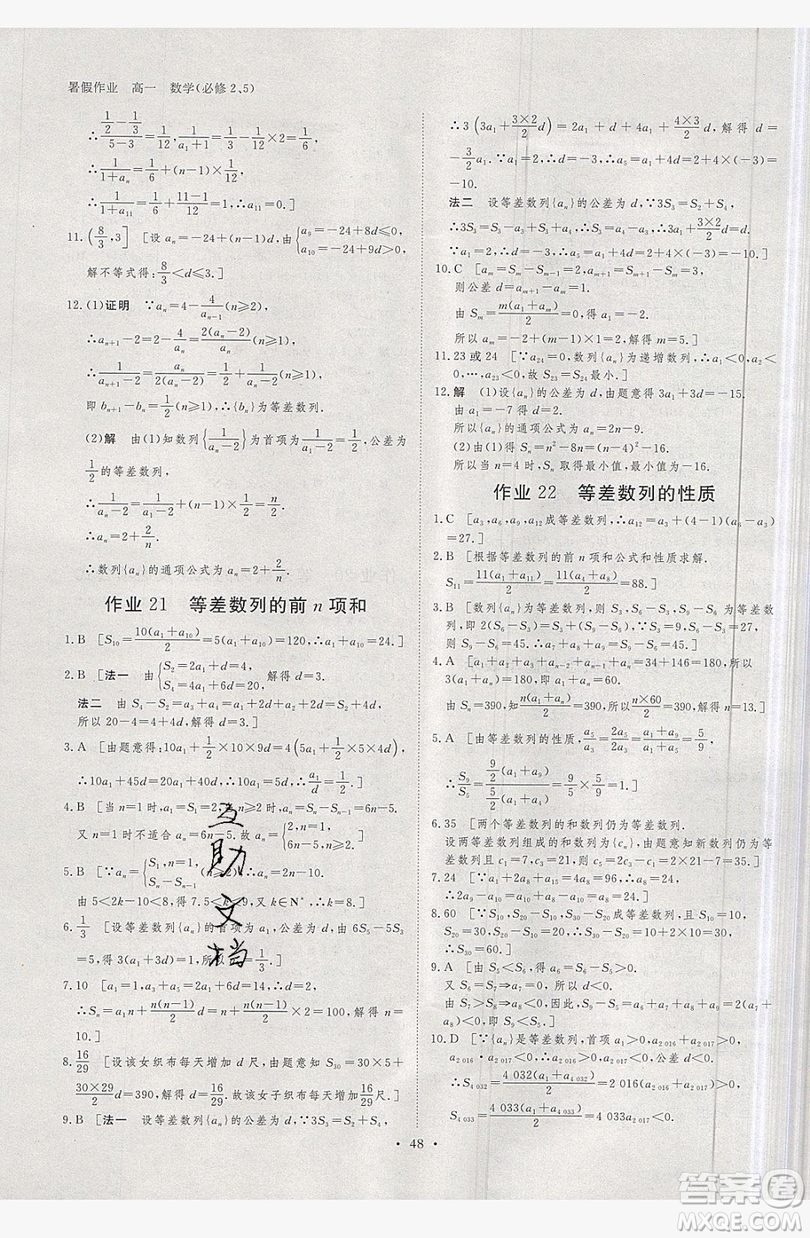 暑假作业 高一 数学(必修2、5)
∴(1/2-1/3)/(5-3)=1/12,∴1/(1+aₙ)=1/3+(n-1)1/12
∴1/(1+aₙ)=1/6+(n-1)×1/12,
∴1/(1+a₁₁)=1/6+(11-1)/12=1.]
11.(8/3,3] [设aₙ=-24+(n-1)d,由{a₉=-24+8d≤0 a₁₀=-24+9d>0,
解不等式得:8/3<d≤3.]
12.(1)证明 ∵aₙ=4-4/aₙ₋₁(n≥2),
∴aₙ₊₁-2=2-4/aₙ=2(aₙ-2)/aₙ(n≥1),
即bₙ₊₁-bₙ=1/2(n≥1),∴{bₙ}为等差数列.
(2)解 由(1)知数列{1/(aₙ-2)}为首项为1/(a₁-2)=1/2,公差为
1/2的等差数列,
∴1/(aₙ-2)=1/(a₁-2)+(n-1)×1/2=n/2,∴aₙ-2=2/n,
∴数列{aₙ}的通项公式为aₙ=2+2/n.
作业21 等差数列的前n项和
1.B [S₁₀=10(a₁+a₁₀)/2=5(a₁+a₁₀)=120,∴a₁+a₁₀=24.]
2.B [法一 由{S₂=2a₁+d=4, S₄=4a₁+6d=20, 解得d=3.
法二 由S₄-S₂=a₃+a₄=a₁+2d+a₂+2d=S₂+4d,
所以20-4=4+4d,解得d=3.]
3.A [由题意得:10a₁+1/2×10×9d=4(5a₁+1/2×5×4d),
∴10a₁+45d=20a₁+40d,∴10a₁=5d,∴a₁/d=1/2.]
又n=1时不适合aₙ=6n-5,故aₙ={2,n=1, 6n-5,n≥2.]
由5<2k-10<8,得7.5<k<9,又k∈N*,∴k=8.]
7.10 [a₁=1,a₃=a₁+2d=5,∴d=2.
∴Sₙ=na₁+n(n-1)/2 d=n+n(n-1)/2×2=n²=100.解得n=
10.]
8.16/29 [设该女织布每天增加d尺,由题意知S₃₀=30×5+
30×29/2 d=390,解得d=16/29.故该女子织布每天增加16/29尺.]
9.B [法一 设等差数列{aₙ}的公差为d,∵3S₃=S₂+S₄,
∴3(3a₁+3×2/2 d)=2a₁+d+4a₁+4×3/2 d,解得d=
-3/2 a₁,∵a₁=2,∴d=-3,∴a₅=a₁+4d=2+4×(-3)=
-10.
法二 设等差数列{aₙ}的公差为d,∵3S₃=S₂+S₄,
∴3S₃=S₃-a₃+S₃+a₄,∴S₃=a₄-a₃,∴3a₁+3×2/2 d=d,
∵a₁=2,∴d=-3,∴a₅=a₁+4d=2+4×(-3)=-10.]
10.C [aₘ=Sₘ-Sₘ₋₁=2,aₘ₊₁=Sₘ₊₁-Sₘ=3,
则公差d=aₘ₊₁-aₘ=1.
由Sₘ=m(a₁+aₘ)/2=0得a₁=-2,
所以aₘ=-2+(m-1)×1=2,解得m=5.]
11.23或24 [∵a₂₄=0,数列{aₙ}为递增数列,∴a₁<0,
…,a₂₃<0.故S₂₃=S₂₄最小.]
12.解 (1)设{aₙ}的公差为d,由题意得3a₁+3d=-15.
由a₁=-7得d=2.
所以{aₙ}的通项公式为aₙ=2n-9.
(2)由(1)得Sₙ=n²-8n=(n-4)²-16.
所以当n=4时,Sₙ取得最小值,最小值为-16.
作业22 等差数列的性质
2.B [根据等差数列的前n项和公式和性质求解.
S₁₁=11(a₁+a₁₁)/2=11(a₄+a₈)/2=88.]
3.B [数列{aₙ}为等差数列,则S₃,S₆-S₃,S₉-S₆为等差数
列,即2(S₆-S₃)=S₃+(S₉-S₆),∵S₃=9,S₆-S₃=27,则
S₉-S₆=45.∴a₇+a₈+a₉=S₉-S₆=45.]
4.A [∵a₁+a₂+a₃+aₙ₋₂+aₙ₋₁+aₙ=34+146=180,所以
3(a₁+aₙ)=180,即a₁+aₙ=60.
由Sₙ=390,知n(a₁+aₙ)/2=390,所以n×60/2=390,解得n=13.]
5.A [由等差数列的性质,a₅/a₃=2a₅/2a₃=(a₁+a₉)/(a₁+a₅)=5/9,
∴S₉/S₅=9/2(a₁+a₉)/5/2(a₁+a₅)=9/5×5/9=1.]
6.35 [两个等差数列的和数列仍为等差数列.
设两等差数列组成的和数列为{cₙ},由题意知新数列仍为等
差数列且c₁=7,c₃=21,则c₅=2c₃-c₁=2×21-7=35.]
∴2a₉-a₁₀=a₈+a₁₀-a₁₀=a₈=24.]
∴S₃₀=60.]
10.D [∵{aₙ}是等差数列,首项a₁>0,a₂ ₀₁₆+a₂ ₀₁₇>0,
a₂ ₀₁₆·a₂ ₀₁₇<0,∴a₂ ₀₁₆>0,a₂ ₀₁₇<0.
∴S₄ ₀₃₂=4 032(a₁+a₄ ₀₃₂)/2=2 016(a₂ ₀₁₆+a₂ ₀₁₇)>0,
S₄ ₀₃₃=4 033(a₁+a₄ ₀₃₃)/2=4 033a₂ ₀₁₇<0.]
互助文档
·48·
答案圈
MXQE.COM